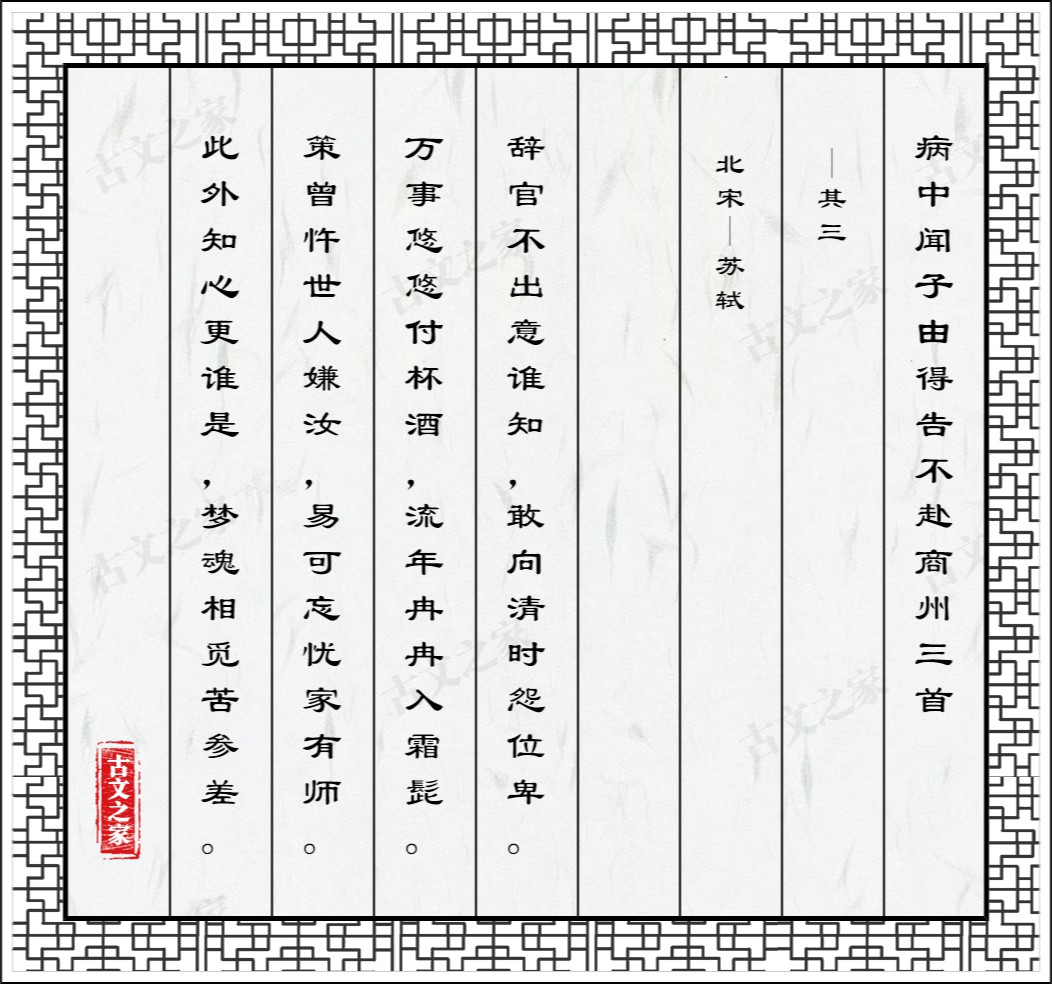 病中闻子由得告不赴商州三首
—其三
北宋—苏轼
辞官不出意谁知，敢向清时怨位卑。
万事悠悠付杯酒，流年冉冉入霜髭。
策曾忤世人嫌汝，易可忘忧家有师。
此外知心更谁是，梦魂相觅苦参差。
古文之家